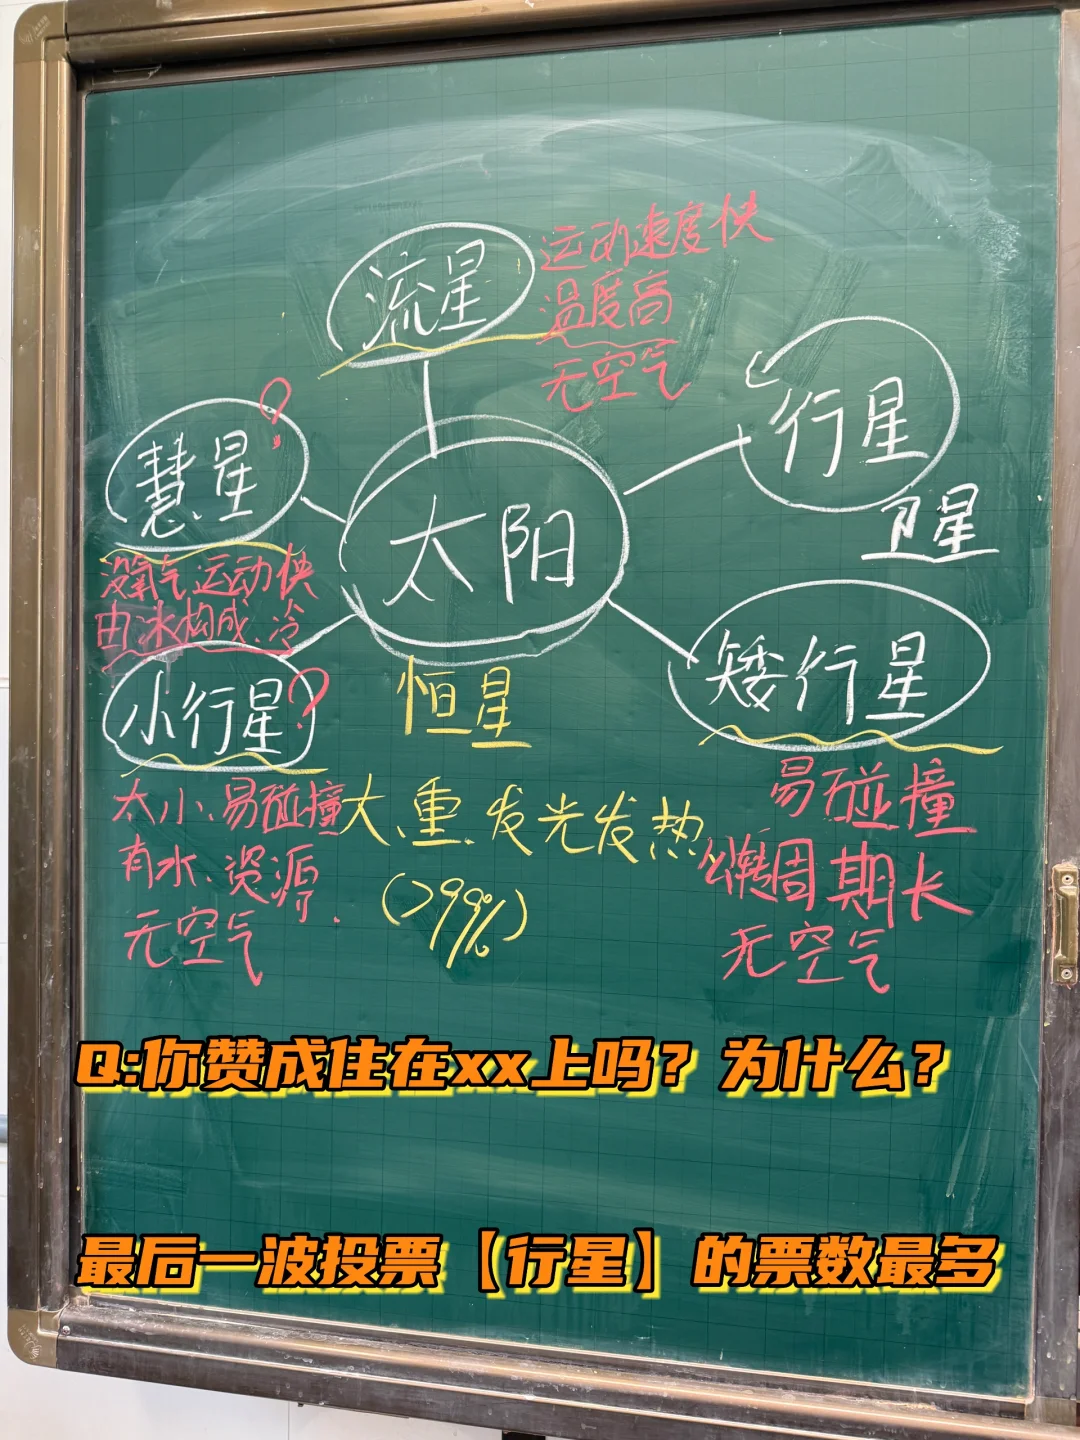 流星
运动速度快
温度高
无空气
行星
卫星
慧星?
没氧气 运动快
由冰构成、冷
太阳
小行星?
太小、易碰撞
有水、资源、
无空气
恒星
大、重、发光发热
(>99%)
矮行星
易碰撞
公转周期长
无空气
Q:你赞成住在xx上吗？为什么？
最后一波投票【行星】的票数最多